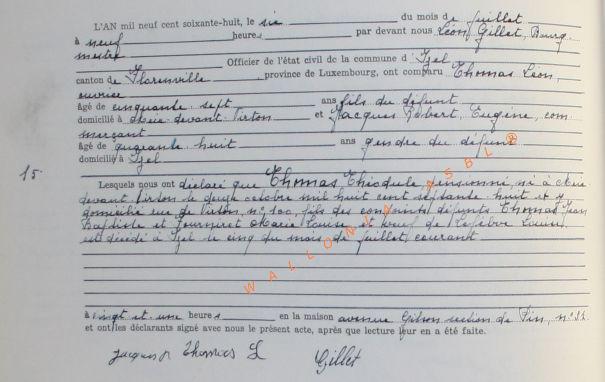 L'AN mil neuf cent soixante-huit, le six du mois de juillet
à neuf heures par devant nous Léon Gillet, Bourg
mestre Officier de l'état civil de la commune d'Izel
canton de Florenville, province de Luxembourg, ont comparu Thomas Léon,
ouvrier
âgé de cinquante-sept ans fils du défunt
domicilié à devant-Virton et Jacques Robert, Eugène, com
merçant
âgé de quarante-huit ans gendre du défunt
domicilié à Izel
15.
Lesquels nous ont déclaré que Thomas Théodule, pensionné, né à
devant-Virton le octobre mil huit cent septante-huit et y
domicilié rue de Virton, n° 100, fils des conjoints défunts Thomas Jean
Baptiste et Fourniret Maria Louise et veuf de Lefebvre Laure
est décédé à Izel le cinq du mois de juillet, courant
à vingt et une heures en la maison avenue section de Pin, n°
et ont les déclarants signé avec nous le présent acte, après que lecture leur en a été faite.
Jacques R Thomas L Gillet
WALLONIA ASBL ®